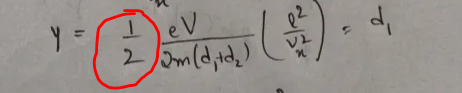 y = 1/2 eV/2m(d₁+d₂) (l²/vₓ²) = d₁